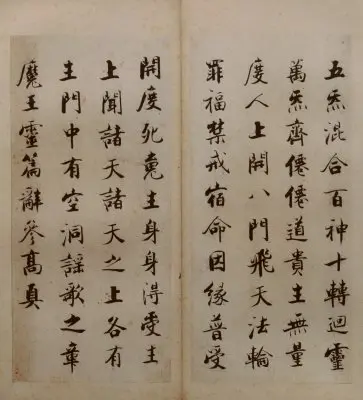 五炁混合百神十轉迴靈
萬炁齊僊僊道貴主無量
度人上開八門飛天法輪
罪福禁戒宿命因緣普受
開度死䰟主身身得受主
上聞諸天諸天之上各有
主門中有空洞謠歌之章
魔王靈篇辭參髙真